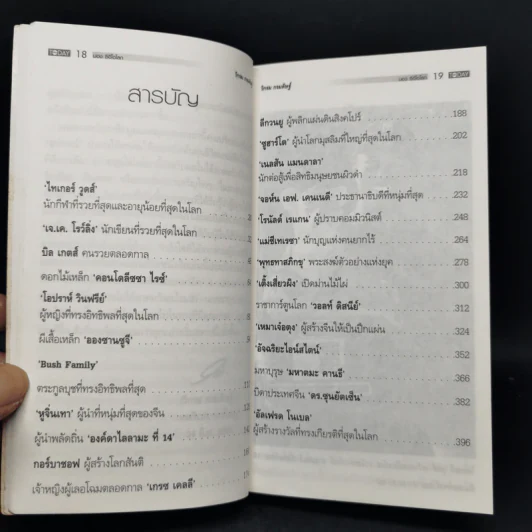 TODAY 18
สารบัญ
'ไทเกอร์ วูดส์'
นักกีฬาที่รวยที่สุดและอายุน้อยที่สุดในโลก
'เจ.เค. โรว์ลิ่ง' นักเขียนที่รวยที่สุดในโลก
บิล เกตส์ คนรวยตลอดกาล
ดอกไม้เหล็ก 'คอนโดลีซซา ไรซ์'
'โอปราห์ วินฟรีย์'
ผู้หญิงที่ทรงอิทธิพลที่สุดในโลก
ผีเสื้อเหล็ก 'อองซานซูจี'
'Bush Family'
ตระกูลบุชที่ทรงอิทธิพลที่สุด
'หูจิ่นเทา' ผู้นำที่หนุ่มที่สุดของจีน
ผู้นำพลัดถิ่น 'องค์ดาไลลามะ ที่ 14'
กอร์บาชอฟ ผู้สร้างโลกสันติ
เจ้าหญิงผู้เลอโฉมตลอดกาล 'เกรซ เคลลี่'
19 TODAY
ลีกวนยู ผู้พลิกแผ่นดินสิงคโปร์ 188
'ซูฮาร์โต' ผู้นำโลกมุสลิมที่ใหญ่ที่สุดในโลก 202
'เนลสัน แมนดาลา'
นักต่อสู้เพื่อสิทธิมนุษยชนผิวดำ 218
'จอห์น เอฟ. เคนเนดี' ประธานาธิบดีที่หนุ่มที่สุด 232
'โรนัลด์ เรแกน' ผู้ปราบคอมมิวนิสต์ 248
'แม่ชีเทเรซา' นักบุญแห่งคนยากไร้ 264
'พุทธทาสภิกขุ' พระสงฆ์ตัวอย่างแห่งยุค 278
'เติ้งเสี่ยวผิง' เปิดม่านไม้ไผ่ 300
ราชาการ์ตูนโลก 'วอลท์ ดิสนีย์' 312
'เหมาเจ๋อตุง' ผู้สร้างจีนให้เป็นปึกแผ่น 324
'อัจฉริยะไอน์สไตน์' 352
มหาบุรุษ 'มหาตมะ คานธี' 366
บิดาประเทศจีน 'ดร.ซุนยัดเซ็น' 382
'อัลเฟรด โนเบล'
ผู้สร้างรางวัลที่ทรงเกียรติที่สุดในโลก 396